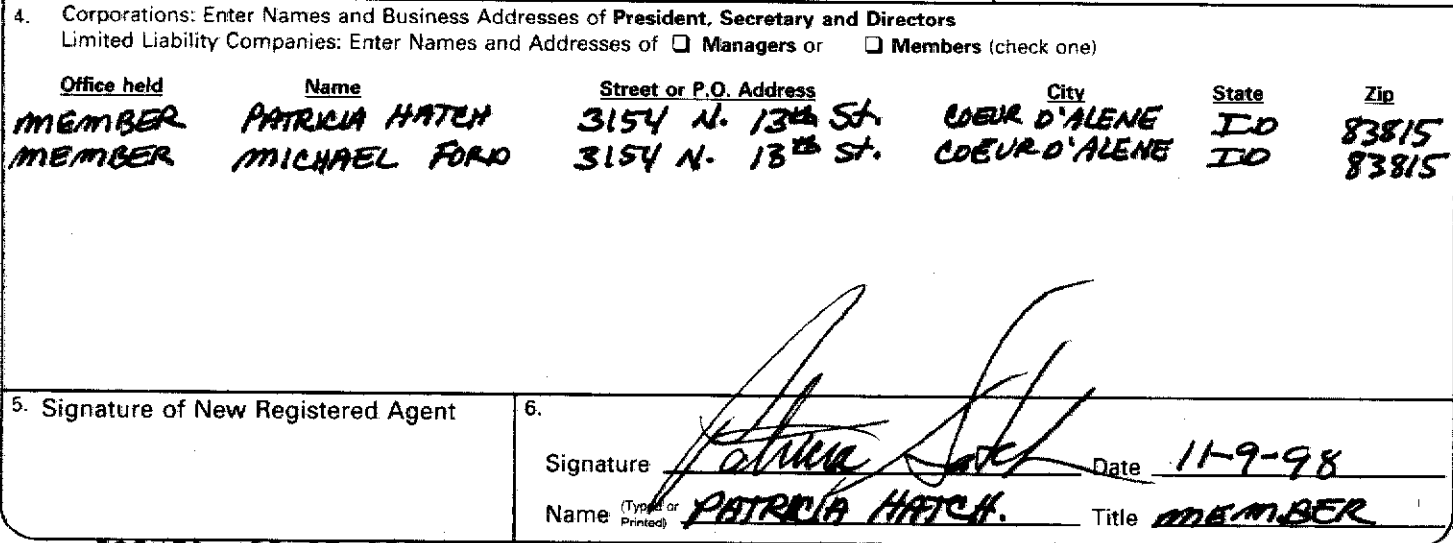 4. Corporations: Enter Names and Business Addresses of President, Secretary and Directors
Limited Liability Companies: Enter Names and Addresses of ❑ Managers or ❑ Members (check one)
Office held Name Street or P.O. Address City State Zip
MEMBER PATRICIA HATCH 3154 N. 13th St. COEUR D'ALENE ID 83815
MEMBER MICHAEL FORD 3154 N. 13th St. COEUR D'ALENE ID 83815
5. Signature of New Registered Agent
6.
Signature Patricia Hatch Date 11-9-98
Name (Typed or Printed) PATRICIA HATCH. Title MEMBER